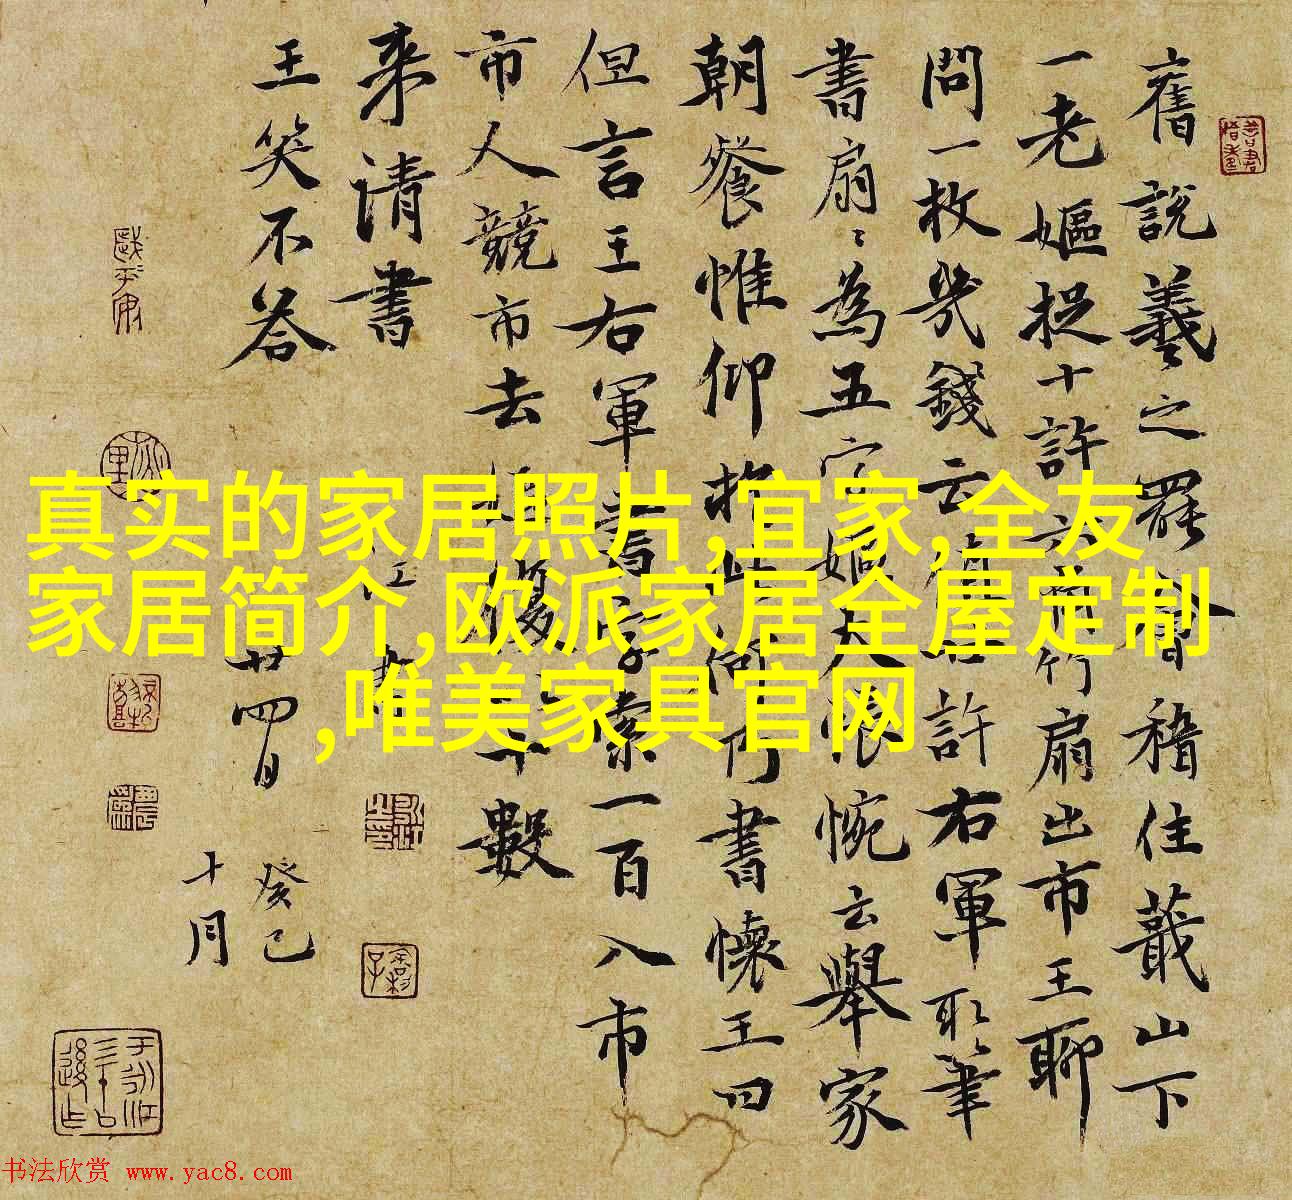 舊說羲之罷會稽住蕺山下
一老嫗捉十許六角竹扇出市王聊
問一枚幾錢云許右軍取筆
書扇〻為五字嫗大悵惋云舉家
朝餐惟仰於此何書懷王曰
但言王右軍書字索一百入市
市人競市去復十數
来請書
王笑不答
癸巳
十月
廿四日
真实的家居照片,宜家,全友
家居简介,欧派家居全屋定制
,唯美家具官网
书法欣赏 www.yac8.com